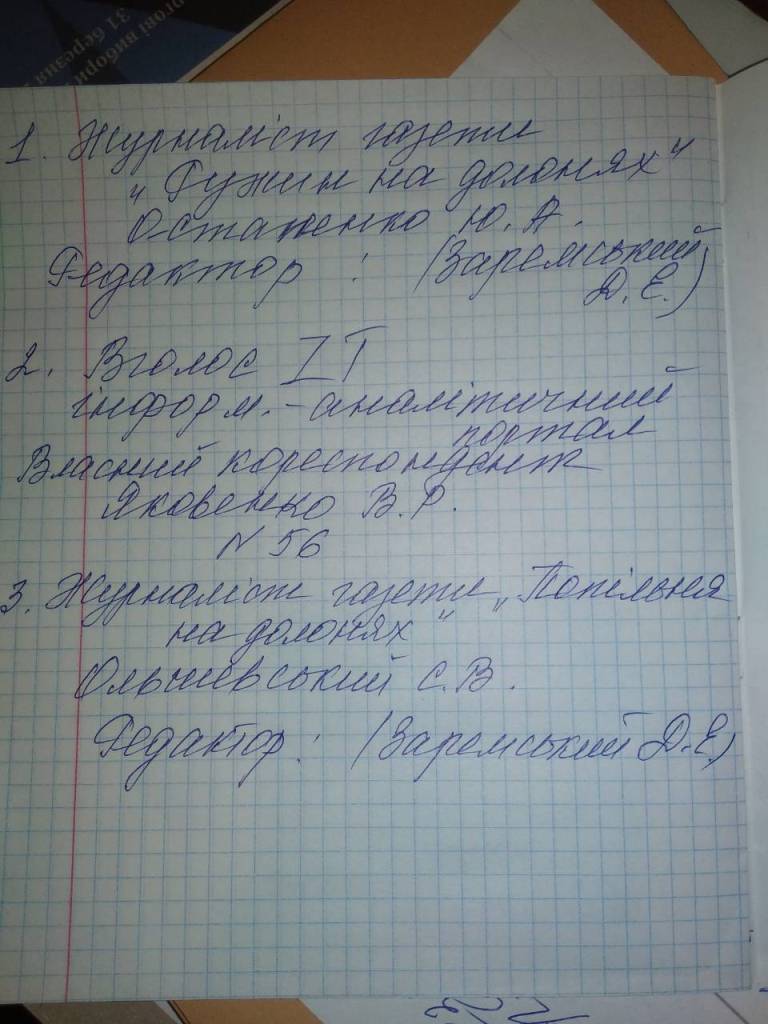 ргові вибори
31 березня
1. Журналіст газети
„Ружин на долонях"
Остапенко Ю. А.
Редактор : (Заремський
Д. Е.)
2. Вголос ZT
інформ.-аналітичний
портал
Власний кореспондент
Яковенко В. Р.
N 56
3. Журналіст газети „Попільня
на долонях"
Ольшевський С. В.
Редактор: (Заремський Д. Е.)